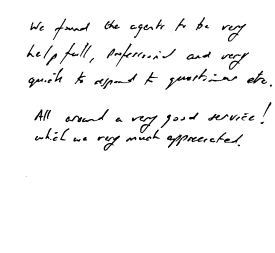 We found the agents to be very
helpfull, Professional and very
quick to respond to questions etc.
All around a very good service!
which we very much appreciated.